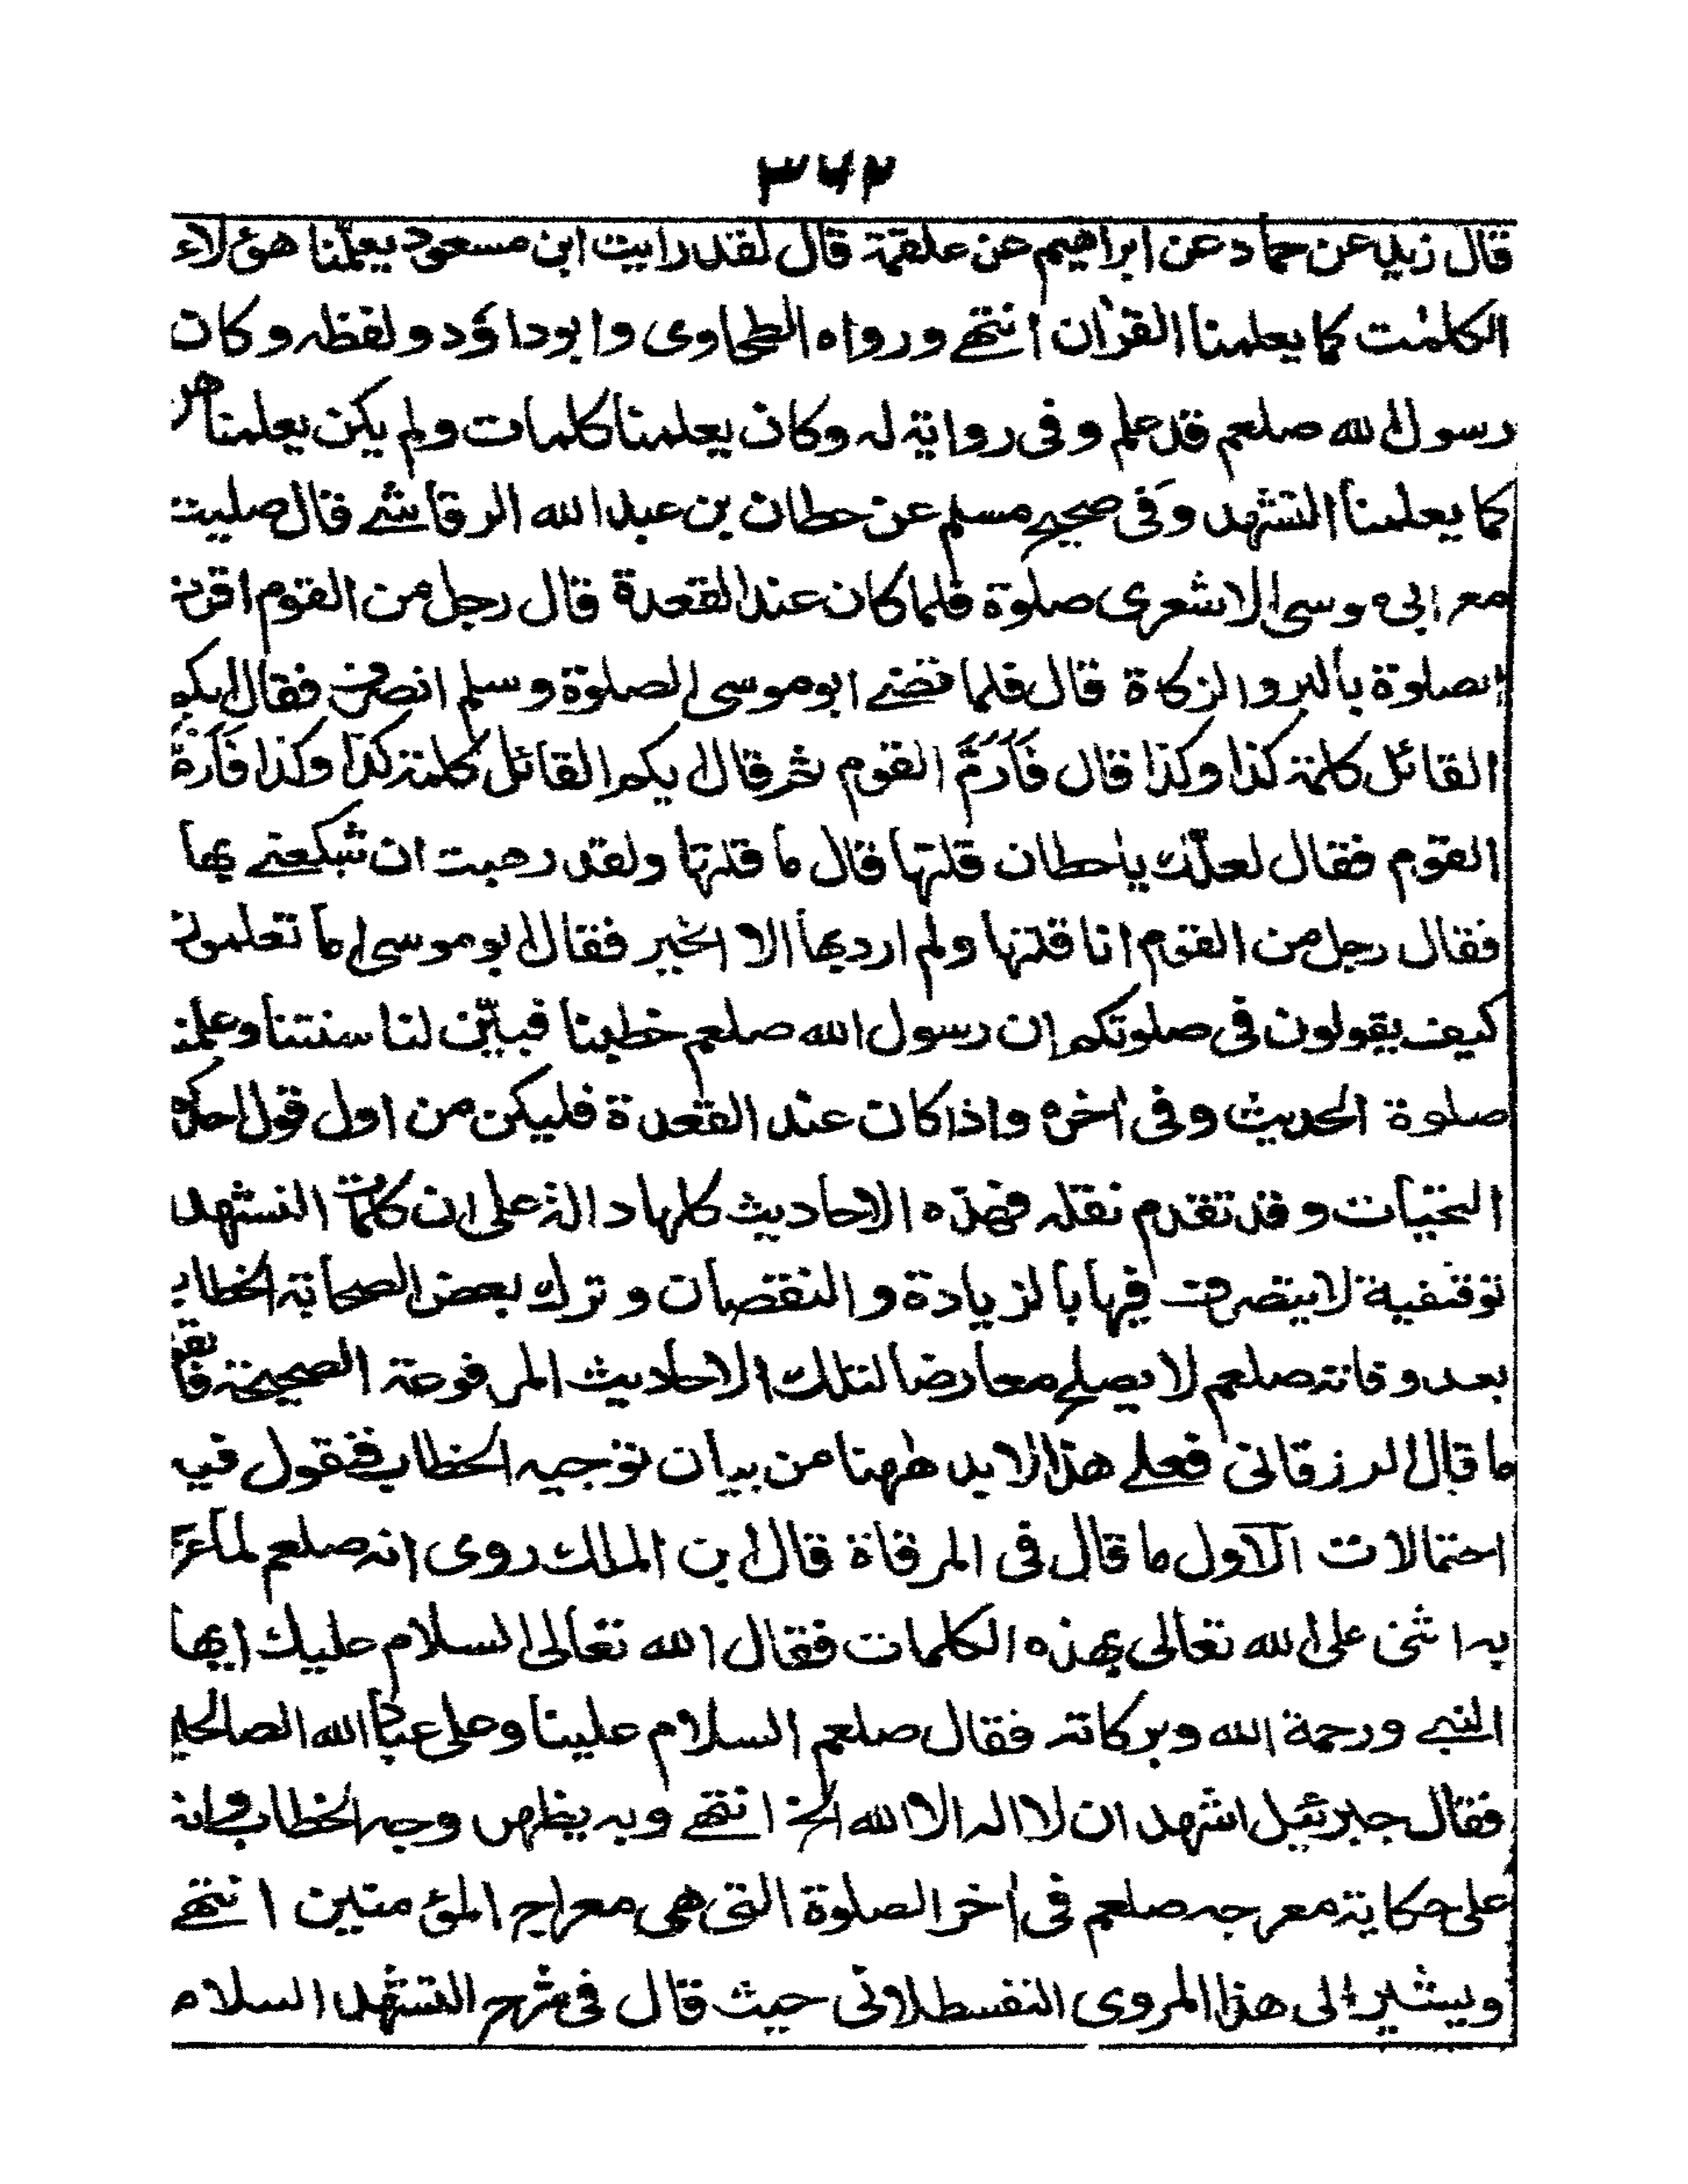 ٣٦٢
قال زيد عن حماد عن ابراهيم عن علقمة قال لقد رايت ابن مسعود يعلّمنا هؤلاء
الكلمٰت كما يعلمنا القرٰان انتهى ورواه الطحاوى وابوداؤد ولفظه وكان
رسول الله صلعم قد علم وفى رواية له وكان يعلمنا كلمات ولم يكن يعلمناهن
كما يعلمنا التشهد وفى صحيح مسلم عن حطان بن عبد الله الرقاشى قال صليت
مع ابى موسى الاشعرى صلوة فلما كان عند القعدة قال رجل من القوم اقرت
الصلوة بالبر والزكاة قال فلما قضى ابوموسى الصلوة وسلم انصرف فقال ايكم
القائل كلمة كذا وكذا قال فَاَرَمَّ القوم ثم قال ايكم القائل كلمة كذا وكذا فَاَرَمَّ
القوم فقال لعلّك ياحطان قلتها قال ما قلتها ولقد رهبت ان تبكعنى بها
فقال رجل من القوم انا قلتها ولم ارد بها الا الخير فقال ابو موسى اما تعلمون
كيف يقولون فى صلوتكم ان رسول الله صلعم خطبنا فبيّن لنا سنتنا وعلمنا
صلوة الحديث وفى اٰخره واذا كان عند القعدة فليكن من اول قول احدكم
التحيات وقد تقدم نقله فهذه الاحاديث كلها دالة على ان كلمات التشهد
توقيفية لايتصرف فيها بالزيادة والنقصان و ترك بعض الصحابة الخطاب
بعد وفاته صلعم لا يصلح معارضا لتلك الاحاديث المرفوعة الصحيحة
ما قال الزرقانى فعلى هذا لابد هٰهنا من بيان توجيه الخطاب فنقول فيه
احتمالات الاول ما قال فى المرقاة قال ابن الملك روى انه صلعم لما عرج
به اثنى على الله تعالى بهذه الكلمات فقال الله تعالى السلام عليك ايها
النبى ورحمة الله وبركاته فقال صلعم السلام علينا وعلى عباد الله الصالحين
فقال جبرئيل اشهد ان لا اله الا الله الخ انتهى وبه يظهر وجه الخطاب وانه
على حكاية معرجه صلعم فى اٰخر الصلوة التى هى معراج المؤمنين انتهى
ويشير الى هذا المروى القسطلانى حيث قال فى شرح التشهد السلام